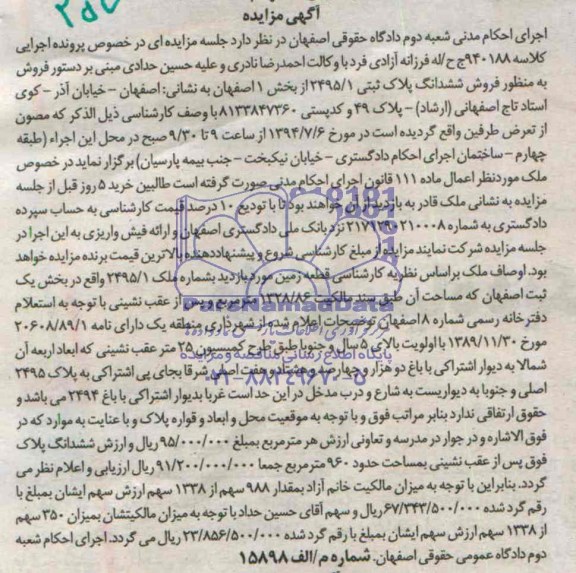 آگهی مزایده
اجرای احکام مدنی شعبه دوم دادگاه حقوقی اصفهان در نظر دارد جلسه مزایده ای در خصوص پرونده اجرایی
کلاسه ۹۴۰۱۸۸ج ح/له فرزانه آزادی فرد با وکالت احمدرضا نادری و علیه حسین حدادی مبنی بر دستور فروش
به منظور فروش ششدانگ پلاک ثبتی ۲۴۹۵/۱ از بخش ۱ اصفهان به نشانی: اصفهان - خیابان آذر - کوی
استاد تاج اصفهانی (ارشاد) - پلاک ۴۹ و کدپستی ۸۱۳۳۸۴۷۳۶۰ با وصف کارشناسی ذیل الذکر که مصون
از تعرض طرفین واقع گردیده است در مورخ ۱۳۹۴/۷/۶ از ساعت ۹ تا ۹/۳۰ صبح در محل این اجراء (طبقه
چهارم - ساختمان اجرای احکام دادگستری - خیابان نیکبخت - جنب بیمه پارسیان) برگزار نماید در خصوص
ملک موردنظر اعمال ماده ۱۱۱ قانون اجرای احکام مدنی صورت گرفته است طالبین خرید ۵ روز قبل از جلسه
مزایده به نشانی ملک قادر به بازدید از آن خواهند بود تا با تودیع ۱۰ درصد قیمت کارشناسی به حساب سپرده
دادگستری به شماره ۲۱۷۱۲۹۰۲۱۰۰۰۸ نزد بانک ملی دادگستری اصفهان و ارائه فیش واریزی به این اجرا در
جلسه مزایده شرکت نمایند مزایده از مبلغ کارشناسی شروع و پیشنهاددهنده بالاترین قیمت برنده مزایده خواهد
بود. اوصاف ملک براساس نظریه کارشناسی قطعه زمین مورد بازدید بشماره ملک ۲۴۹۵/۱ واقع در بخش یک
ثبت اصفهان که مساحت آن طبق سند مالکیت ۱۳۳۸/۸۶ مترمربع و پس از عقب نشینی با توجه به استعلام
دفترخانه رسمی شماره ۸ اصفهان توضیحات اعلام شده از شهرداری منطقه یک دارای نامه ۲۰۶۰۸/۸۹/۱
مورخ ۱۳۸۹/۱۱/۳۰ با اولویت بالای ۵ سال و جنوبا طبق طرح کمیسیون ۲۵ متر عقب نشینی که ابعاد اربعه آن
شمالا به دیوار اشتراکی با باغ دو هزار و چهارصد و هشتاد و هفت اصلی شرقا بجای پی اشتراکی به پلاک ۲۴۹۵
اصلی و جنوبا به دیواریست به شارع و درب مدخل در این حد است غربا بدیوار اشتراکی با باغ ۲۴۹۴ می باشد و
حقوق ارتفاقی ندارد بنابر مراتب فوق و با توجه به موقعیت محل و ابعاد و قواره پلاک و با عنایت به موارد که در
فوق الاشاره و در جوار در مدرسه و تعاونی ارزش هر مترمربع بمبلغ ۹۵/۰۰۰/۰۰۰ ریال و ارزش ششدانگ پلاک
فوق پس از عقب نشینی بمساحت حدود ۹۶۰ مترمربع جمعا ۹۱/۲۰۰/۰۰۰/۰۰۰ ریال ارزیابی و اعلام نظر می
گردد. بنابراین با توجه به میزان مالکیت خانم آزاد بمقدار ۹۸۸ سهم از ۱۳۳۸ سهم ارزش سهم ایشان بمبلغ با
رقم گرد شده ۶۷/۳۴۳/۵۰۰/۰۰۰ ریال و سهم آقای حسین حداد با توجه به میزان مالکیتشان بمیزان ۳۵۰ سهم
از ۱۳۳۸ سهم ارزش سهم ایشان بمبلغ با رقم گرد شده ۲۳/۸۵۶/۵۰۰/۰۰۰ ریال می گردد. اجرای احکام شعبه
دوم دادگاه عمومی حقوقی اصفهان. شماره م/الف ۱۵۸۹۸
ParsNamadData
پایگاه اطلاع رسانی مناقصه و مزایده
۰۲۱-۸۸۳۴۹۶۷۰-۵